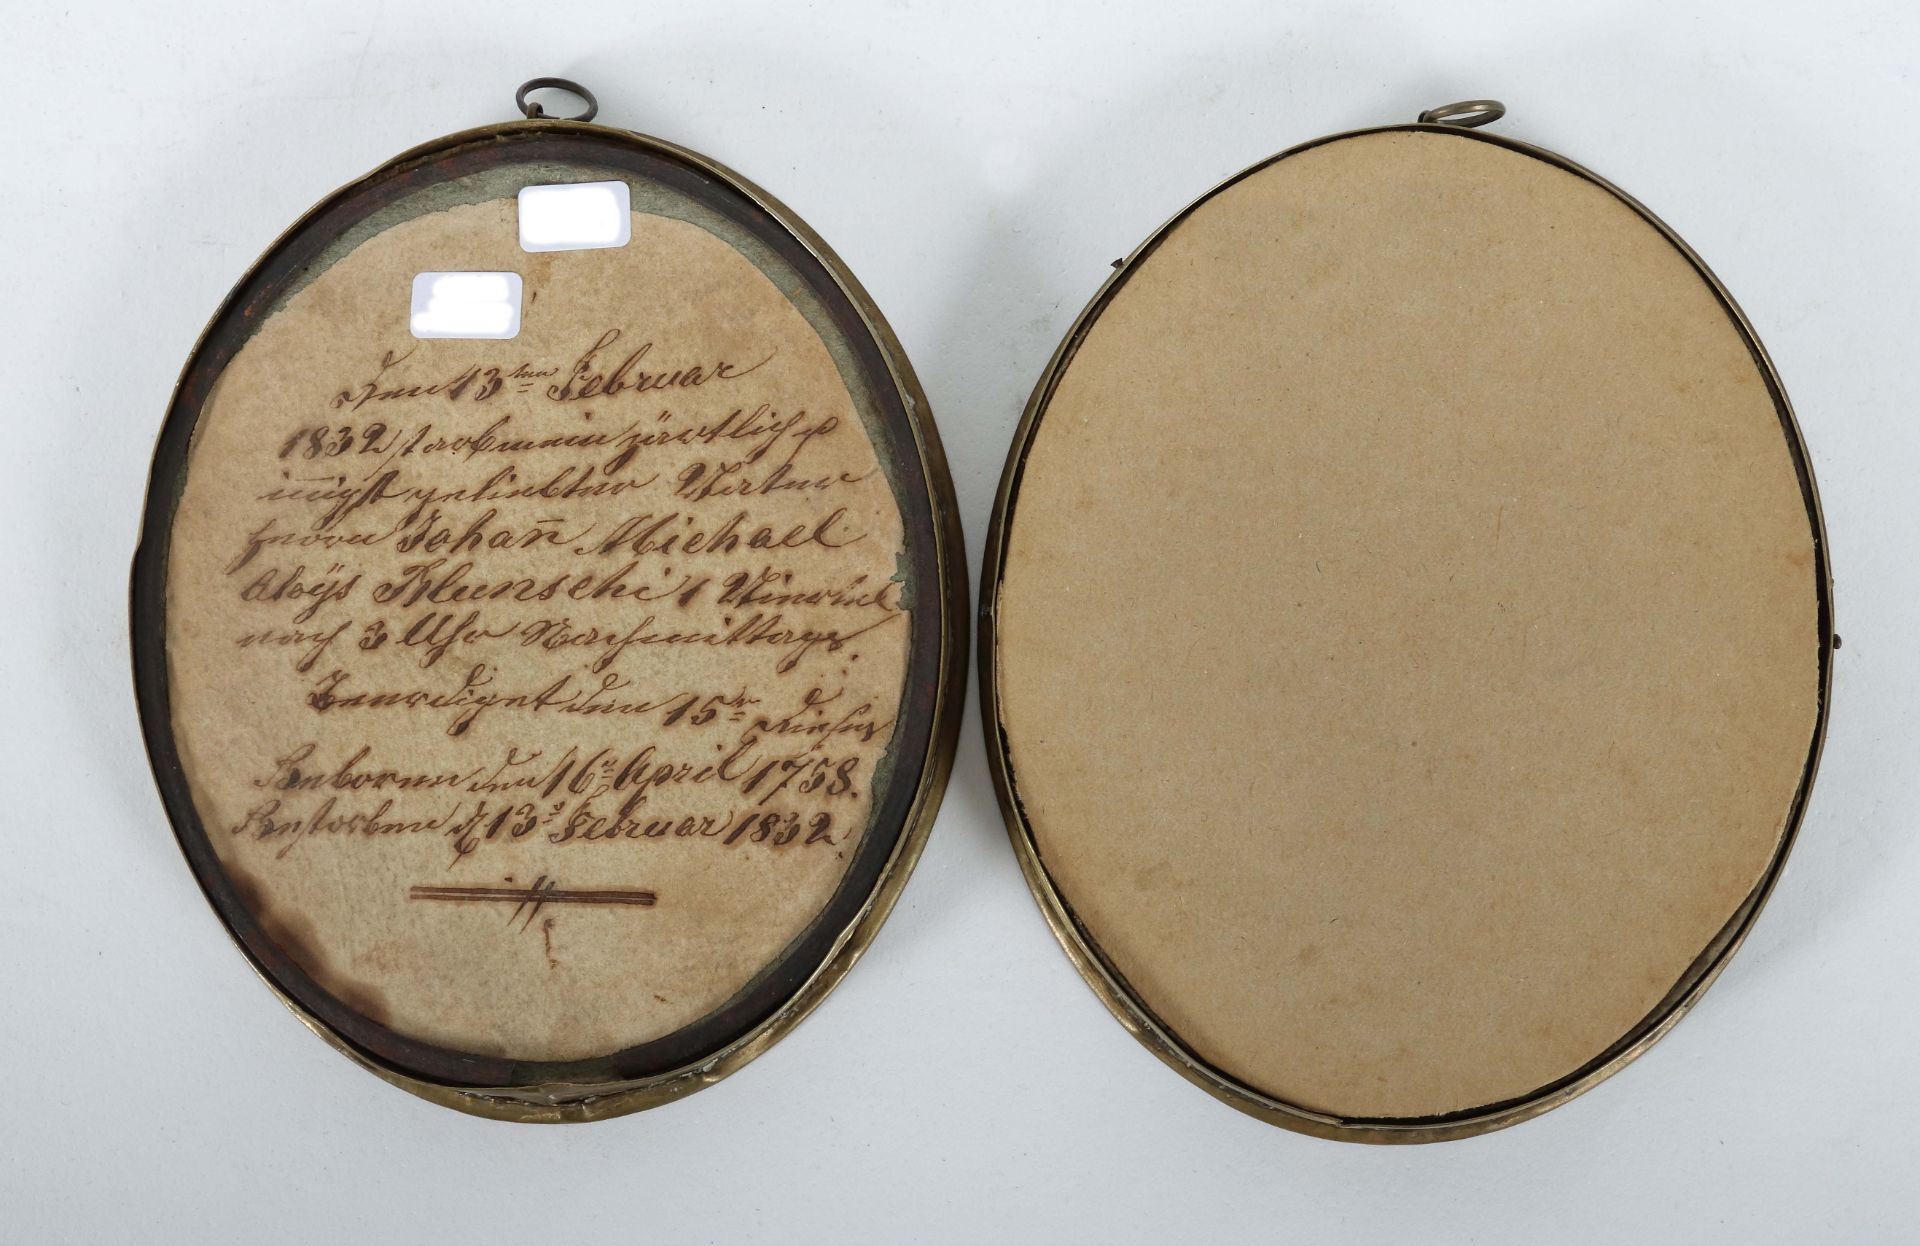 Den 13ten Februar
1832 starb mein zärtlich
innigst geliebter Vater
Herrn Johan̄ Michael
Aloÿs Blunschi 1 Viertel
nach 3 Uhr Nachmittags
Beerdiget den 15n dieses
Geboren den 16n April 1758.
Gestorben d 13n Februar 1832.